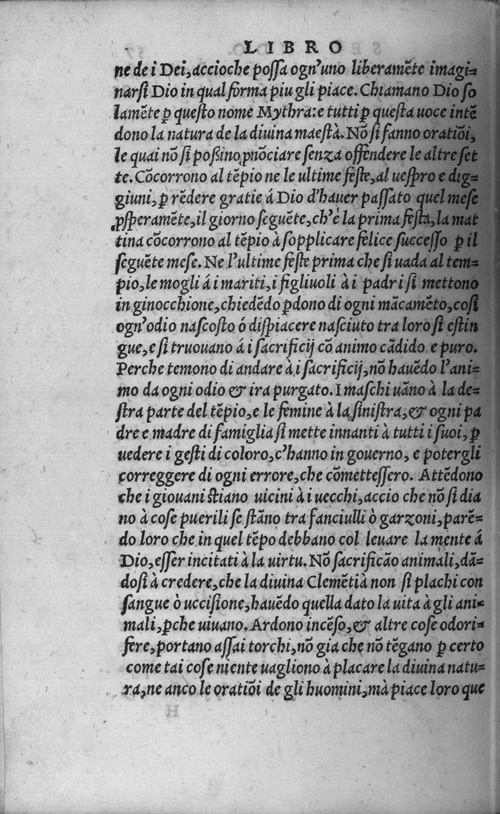 LIBRO
ne de i Dei, accioche possa ogn'uno liberamẽte imagi-
narsi Dio in qual forma piu gli piace. Chiamano Dio so
lamẽte ꝑ questo nome Mythra: e tutti ꝑ questa uoce intẽ
dono la natura de la diuina maestà. Nõ si fanno oratiõi,
le quai nõ si possino ꝓnõciare senza offendere le altre set
te. Cõcorrono al tẽpio ne le ultime feste, al uespro e dig-
giuni, ꝑ rẽdere gratie á Dio d'hauer passato quel mese
ꝓsperamẽte, il giorno seguẽte, ch'è la prima festa, la mat
tina cõcorrono al tẽpio à sopplicare felice successo ꝑ il
seguẽte mese. Ne l'ultime feste prima che si uada al tem-
pio, le mogli á i mariti, i figliuoli à i padri si mettono
in ginocchione, chiedẽdo ꝑdono di ogni mãcamẽto, cosi
ogn'odio nascosto ó dispiacere nasciuto tra loro si estin
gue, e si truouano á i sacrificij cõ animo cãdido e puro.
Perche temono di andare à i sacrificij, nõ hauẽdo l'ani-
mo da ogni odio & ira purgato. I maschi uãno à la de-
stra parte del tẽpio, e le femine à la sinistra, & ogni pa
dre e madre di famiglia si mette innanti à tutti i suoi, ꝑ
uedere i gesti di coloro, c'hanno in gouerno, e potergli
correggere di ogni errore, che cõmettessero. Attẽdono
che i giouani stiano uicini à i uecchi, accio che nõ si dia
no à cose puerili se stãno tra fanciulli ò garzoni, parẽ-
do loro che in quel tẽpo debbano col leuare la mente á
Dio, esser incitati à la uirtu. Nõ sacrificão animali, dã-
dosi à credere, che la diuina Clemẽtià non si plachi con
sangue ò uccisione, hauẽdo quella dato la uita à gli ani-
mali, ꝑche uiuano. Ardono incẽso, & altre cose odori-
fere, portano assai torchi, nõ gia che nõ tẽgano ꝑ certo
come tai cose niente uagliono à placare la diuina natu-
ra, ne anco le oratiõi de gli huomini, mà piace loro que